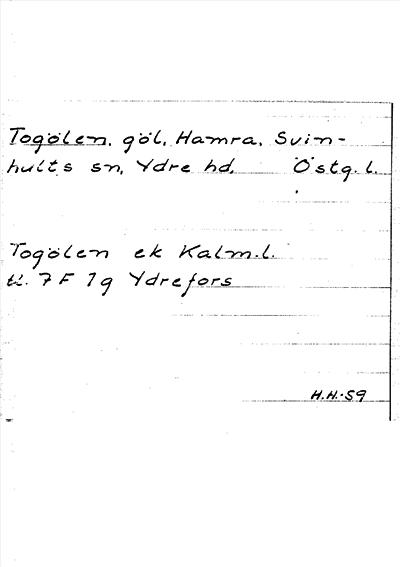 Togölen, göl, Hamra, Svin-
hults sn, Ydre hd, Östg. l.
Togölen ek Kalm.l.
bl. 7 F 1g Ydrefors
H.H.-59